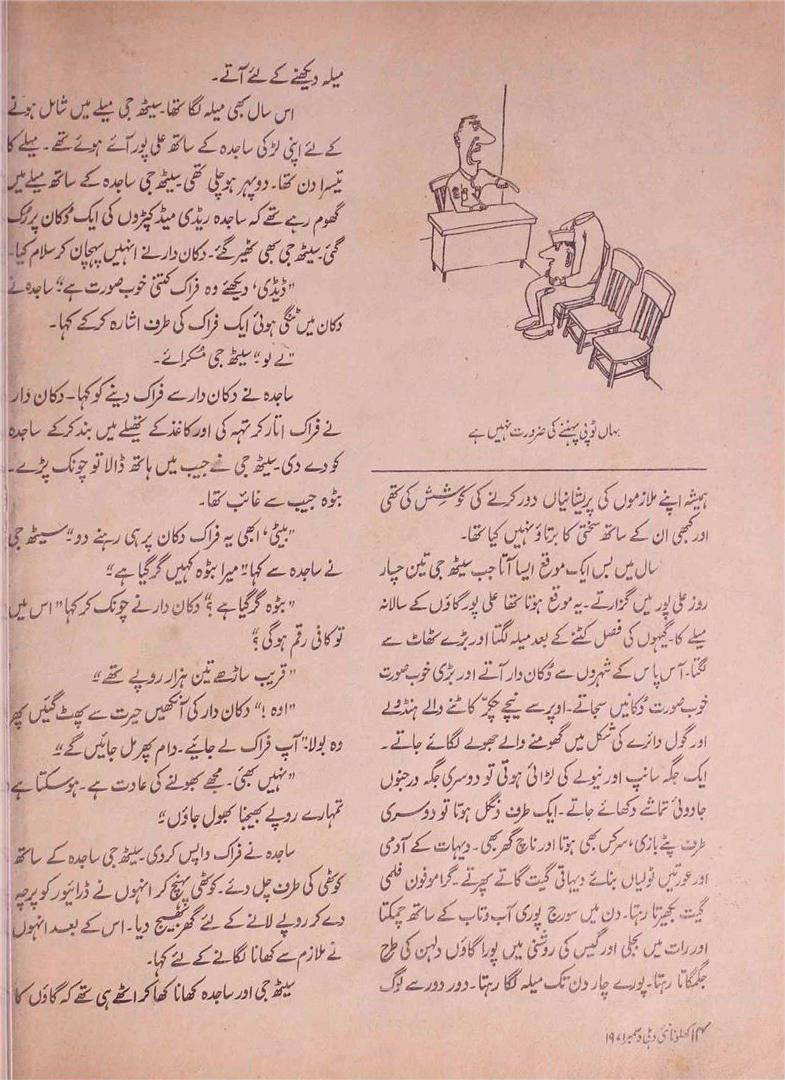 یہاں ٹوپی پہننے کی ضرورت نہیں ہے
ہمیشہ اپنے ملازموں کی پریشانیاں دور کرنے کی کوشش کی تھی
اور کبھی ان کے ساتھ سختی کا برتاؤ نہیں کیا تھا۔
سال میں بس ایک موقع ایسا آتا جب سیٹھ جی تین چار
روز علی پور میں گزارتے۔ یہ موقع ہوتا تھا علی پور گاؤں کے سالانہ
میلے کا۔ گیہوں کی فصل کٹنے کے بعد میلہ لگتا اور بڑے ٹھاٹ سے
لگتا۔ آس پاس کے شہروں سے دُکان دار آتے اور بڑی خوب صورت
خوب صورت دُکانیں سجاتے۔ اوپر سے نیچے چکّر کاٹنے والے ہنڈولے
اور گول دائرے کی شکل میں گھومنے والے جھولے لگائے جاتے۔
ایک جگہ سانپ اور نیولے کی لڑائی ہوتی تو دوسری جگہ درجنوں
جادوئی تماشے دکھائے جاتے۔ ایک طرف دنگل ہوتا تو دوسری
طرف پٹے بازی، سرکس بھی ہوتا اور ناچ گھر بھی۔ دیہات کے آدمی
اور عورتیں ٹولیاں بنائے دیہاتی گیت گاتے پھرتے۔ گراموفون فلمی
گیت بکھیرتا رہتا۔ دن میں سورج پوری آب و تاب کے ساتھ چمکتا
اور رات میں بجلی اور گیس کی روشنی میں پورا گاؤں دلہن کی طرح
جگمگاتا رہتا۔ پورے چار دن تک میلہ لگا رہتا۔ دور دور سے لوگ
میلہ دیکھنے کے لئے آتے۔
اس سال بھی میلہ لگا تھا۔ سیٹھ جی میلے میں شامل ہونے
کے لئے اپنی لڑکی ساجدہ کے ساتھ علی پور آئے ہوئے تھے۔ میلے کا
تیسرا دن تھا۔ دوپہر ہو چلی تھی۔ سیٹھ جی ساجدہ کے ساتھ میلے میں
گھوم رہے تھے کہ ساجدہ ریڈی میڈ کپڑوں کی ایک دُکان پر رُک
گئی۔ سیٹھ جی بھی ٹھیر گئے۔ دکان دار نے انہیں پہچان کر سلام کیا۔
”ڈیڈی، دیکھئے وہ فراک کتنی خوب صورت ہے“۔ ساجدہ نے
دکان میں ٹنگی ہوئی ایک فراک کی طرف اشارہ کرکے کہا۔
”لے لو“۔ سیٹھ جی مُسکرائے۔
ساجدہ نے دکان دار سے فراک دینے کو کہا۔ دکان دار
نے فراک اتار کر تہہ کی اور کاغذ کے تھیلے میں بند کرکے ساجدہ
کو دے دی۔ سیٹھ جی نے جیب میں ہاتھ ڈالا تو چونک پڑے۔
بٹوہ جیب سے غائب تھا۔
”بیٹی، ابھی یہ فراک دکان پر ہی رہنے دو“۔ سیٹھ جی
نے ساجدہ سے کہا۔ ”میرا بٹوہ کہیں گر گیا ہے“۔
”بٹوہ گر گیا ہے؟“ دکان دار نے چونک کر کہا ”اس میں
تو کافی رقم ہوگی؟“
”قریب ساڑھے تین ہزار روپے تھے“۔
”اوہ!“ دکان دار کی آنکھیں حیرت سے پھٹ گئیں پھر
وہ بولا۔ ”آپ فراک لے جائیے۔ دام پھر مل جائیں گے“۔
”نہیں بھئی۔ مجھے بھولنے کی عادت ہے۔ ہو سکتا ہے
تمہارے روپے بھیجنا بھول جاؤں“۔
ساجدہ نے فراک واپس کردی۔ سیٹھ جی ساجدہ کے ساتھ
کوٹھی کی طرف چل دئے۔ کوٹھی پہنچ کر انہوں نے ڈرائیور کو پرچہ
دے کر روپے لانے کے لئے گھر بھیج دیا۔ اس کے بعد انہوں
نے ملازم سے کھانا لگانے کے لئے کہا۔
سیٹھ جی اور ساجدہ کھانا کھا کر اٹھے ہی تھے کہ گاؤں کا
کھلونا نئی دہلی دسمبر ۱۹۷۱